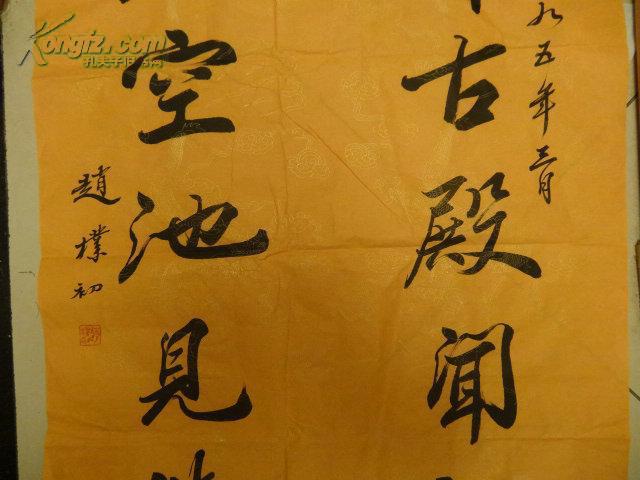 九五年三月
古殿聞
空池見
趙樸初
Kongfz.com
孔夫子旧书网